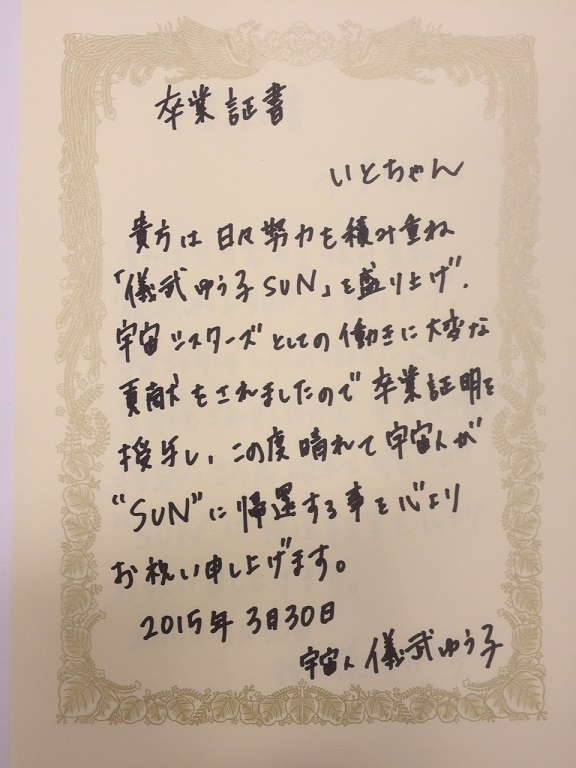 卒業証書
いとちゃん
貴方は日々努力を積み重ね
「儀武ゆう子SUN」を盛り上げ、
宇宙シスターズとしての働きに大きな
貢献をされましたので卒業証明を
授与し、この度晴れて宇宙人が
“SUN”に帰還する事を心より
お祝い申し上げます。
2015年3月30日
宇宙人 儀武ゆう子